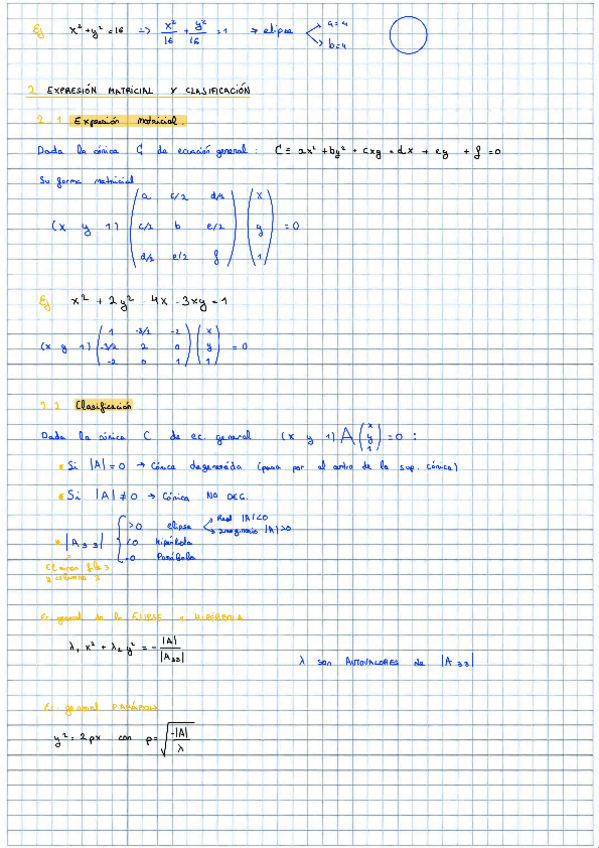 Ej x² + y² = 16 => x²/16 + y²/16 = 1 → elipse → a=4 → b=4
2 EXPRESIÓN MATRICIAL Y CLASIFICACIÓN
2.1 Expresión matricial.
Dada la cónica C de ecuación general: C ≡ ax² + by² + cxy + dx + ey + f = 0
Su forma matricial
(x y 1) (a c/2 d/2; c/2 b e/2; d/2 e/2 f) (x; y; 1) = 0
Ej x² + 2y² - 4x - 3xy = -1
(x y 1) (1 -3/2 -2; -3/2 2 0; -2 0 1) (x; y; 1) = 0
Clasificación
Dada la cónica C de ec. general (x y 1) A (x; y; 1) = 0 :
Si |A| = 0 → Cónica degenerada (pasa por el centro de la sup. cónica)
Si |A| ≠ 0 → Cónica NO DEG.
|A33| { >0 elipse → Real |A|<0 → Imaginario |A|>0
<0 Hipérbola
=0 Parábola
fila 3
columna 3
Ec general de la ELIPSE o HIPÉRBOLA
λ₁ x² + λ₂ y² = - |A|/|A33|
λ son AUTOVALORES de |A33|
Ec. general PARÁBOLA
y² = 2px con p = √(-|A|/λ)